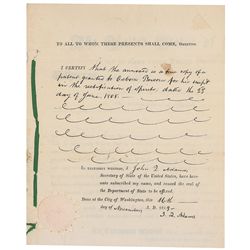 TO ALL TO WHOM THESE PRESENTS SHALL COME, GREETING:
I CERTIFY, That the annexed is a true copy of a
patent granted to Osborn Parsons for his improvt
in the rectification of Spirits, dated the 23
day of June 1808.
IN TESTIMONY WHEREOF, I John Q. Adams,
Secretary of State of the United States, have hereunto
subscribed my name, and caused the seal of
the Department of State to be affixed.
Done at the City of Washington, this 16th
day of November A. D. 1819
J. Q. Adams